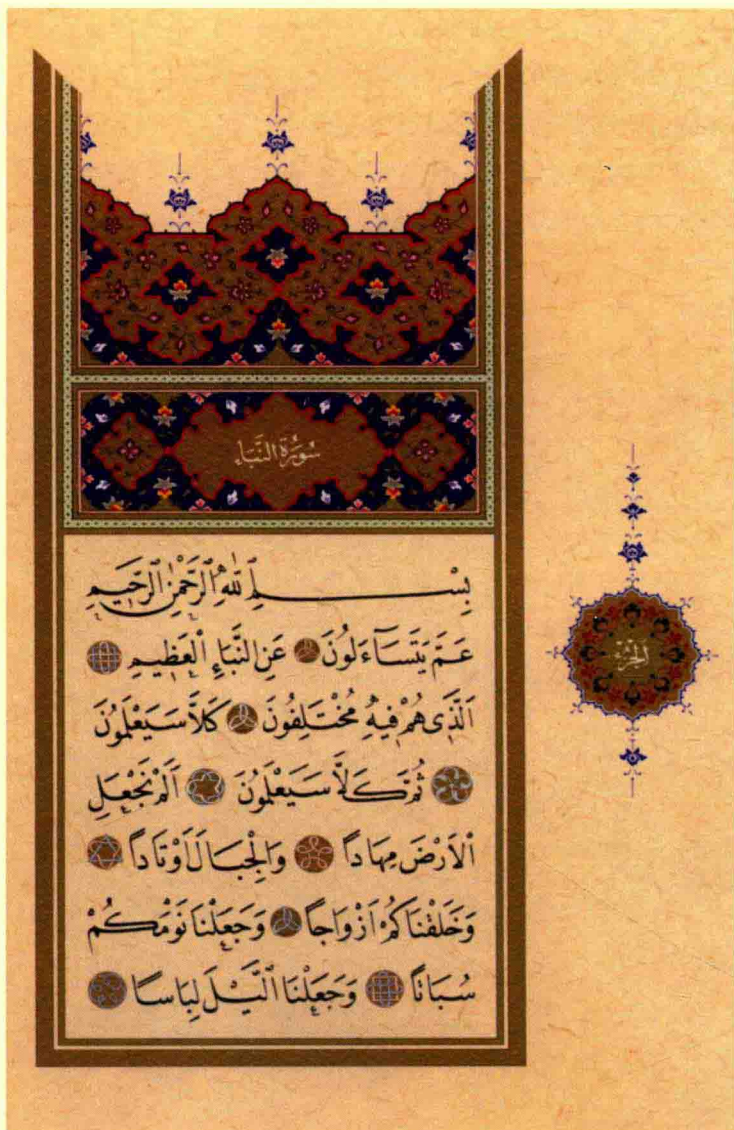 سُورَةُ النَّبَإِ
بِسْمِ اللّٰهِ الرَّحْمٰنِ الرَّحِيمِ
عَمَّ يَتَسَآءَلُونَ عَنِ النَّبَإِ الْعَظِيمِ
اَلَّذِى هُمْ فِيهِ مُخْتَلِفُونَ كَلَّا سَيَعْلَمُونَ
ثُمَّ كَلَّا سَيَعْلَمُونَ اَلَمْ نَجْعَلِ
الْاَرْضَ مِهَاداً وَالْجِبَالَ اَوْتَاداً
وَخَلَقْنَاكُمْ اَزْوَاجاً وَجَعَلْنَا نَوْمَكُمْ
سُبَاتاً وَجَعَلْنَا الَّيْلَ لِبَاساً
اَلْجُزْءُ